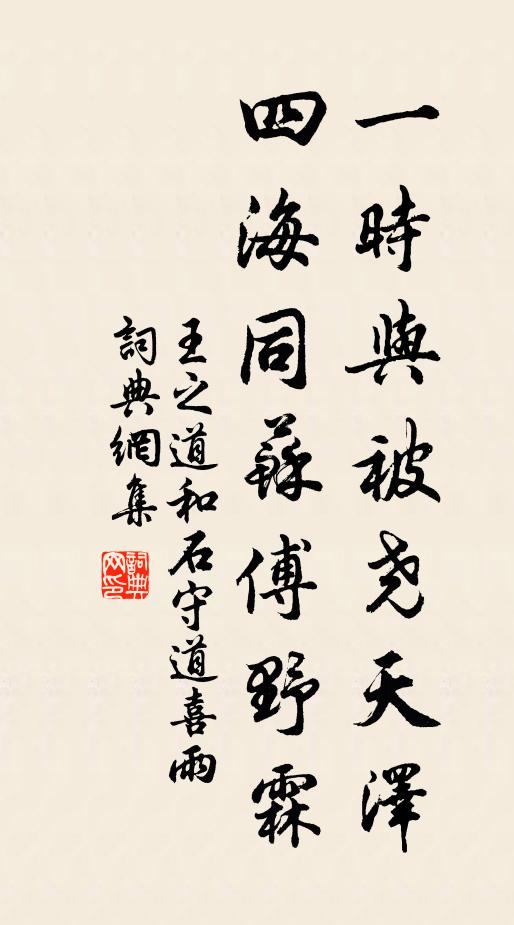 一時與被尧天澤
四海同蘇傅野霖
王之道和石守道喜雨
詞典網集
詞典网印